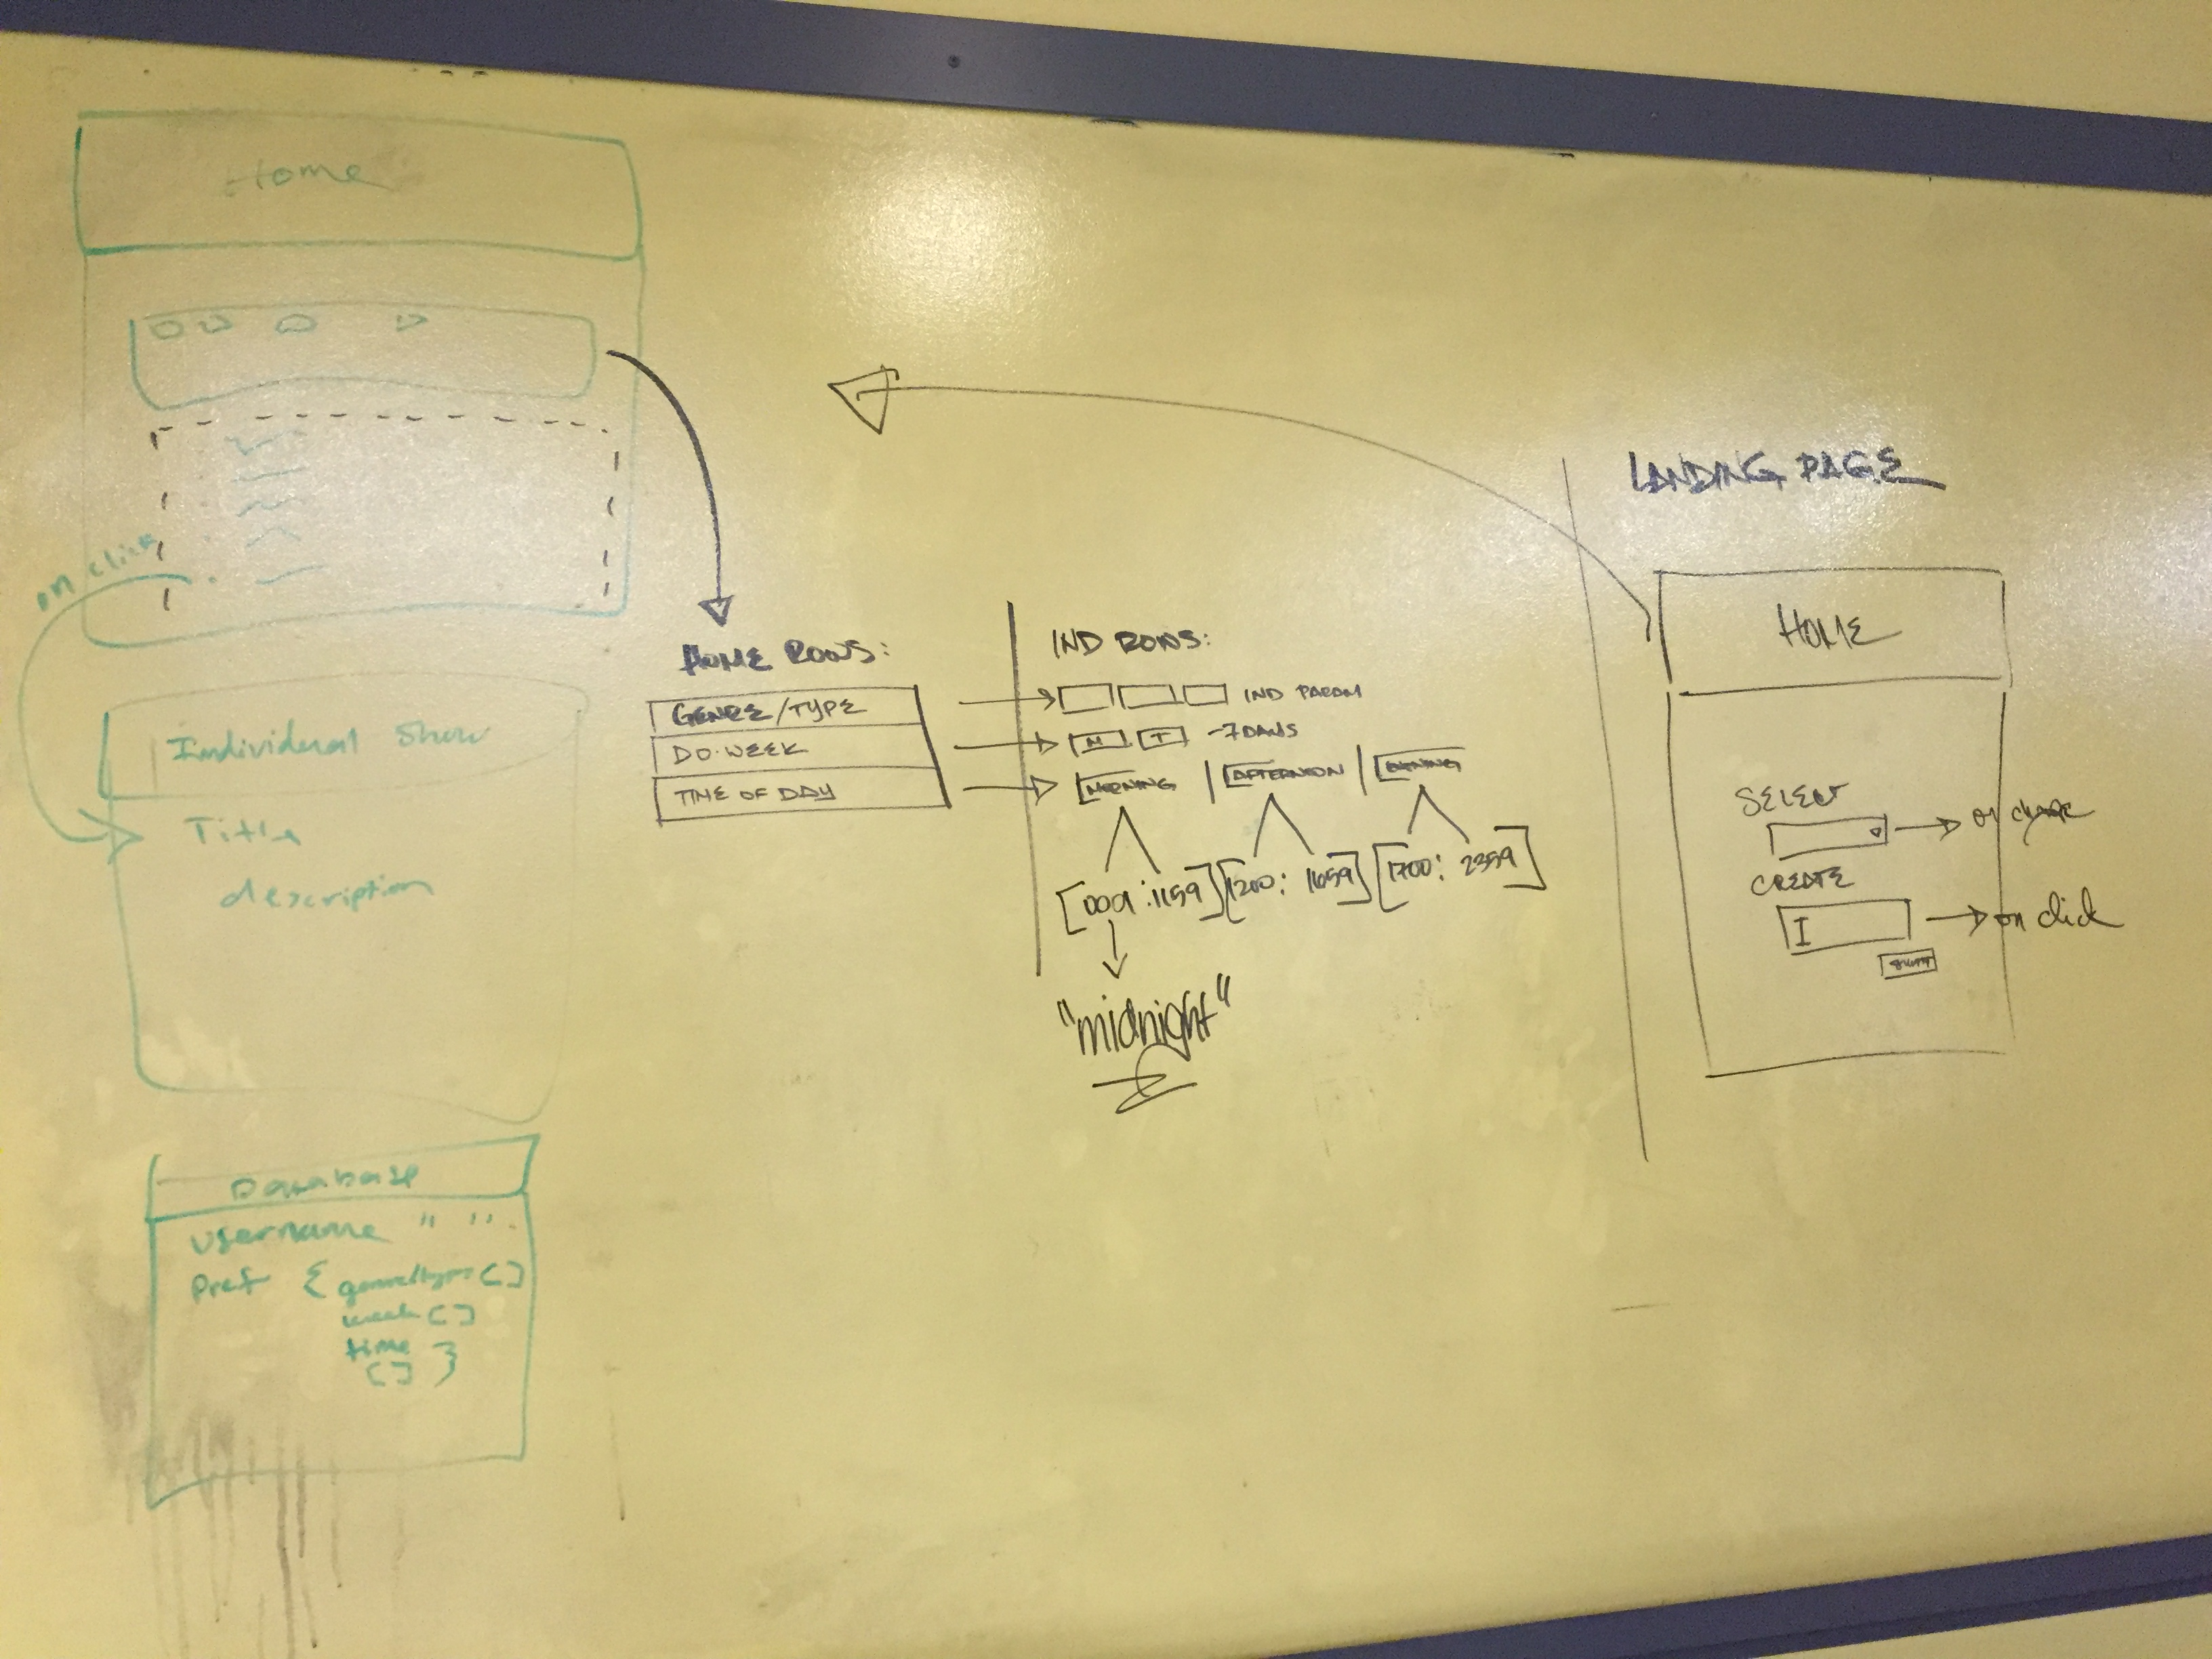 Home
on click
Individual Show
Title
description
Database
username " "
Pref { genre/type []
week []
time
[] }
HOME ROWS:
GENRE/TYPE
DO.WEEK
TIME OF DAY
IND ROWS:
IND PARAM
M T -7 DAYS
[MORNING | [AFTERNOON | [EVENING
[0001:1159] [1200: 1659] [1700: 2359]
"midnight"
LANDING PAGE
HOME
SELECT
on change
CREATE
I on click
SUBMIT